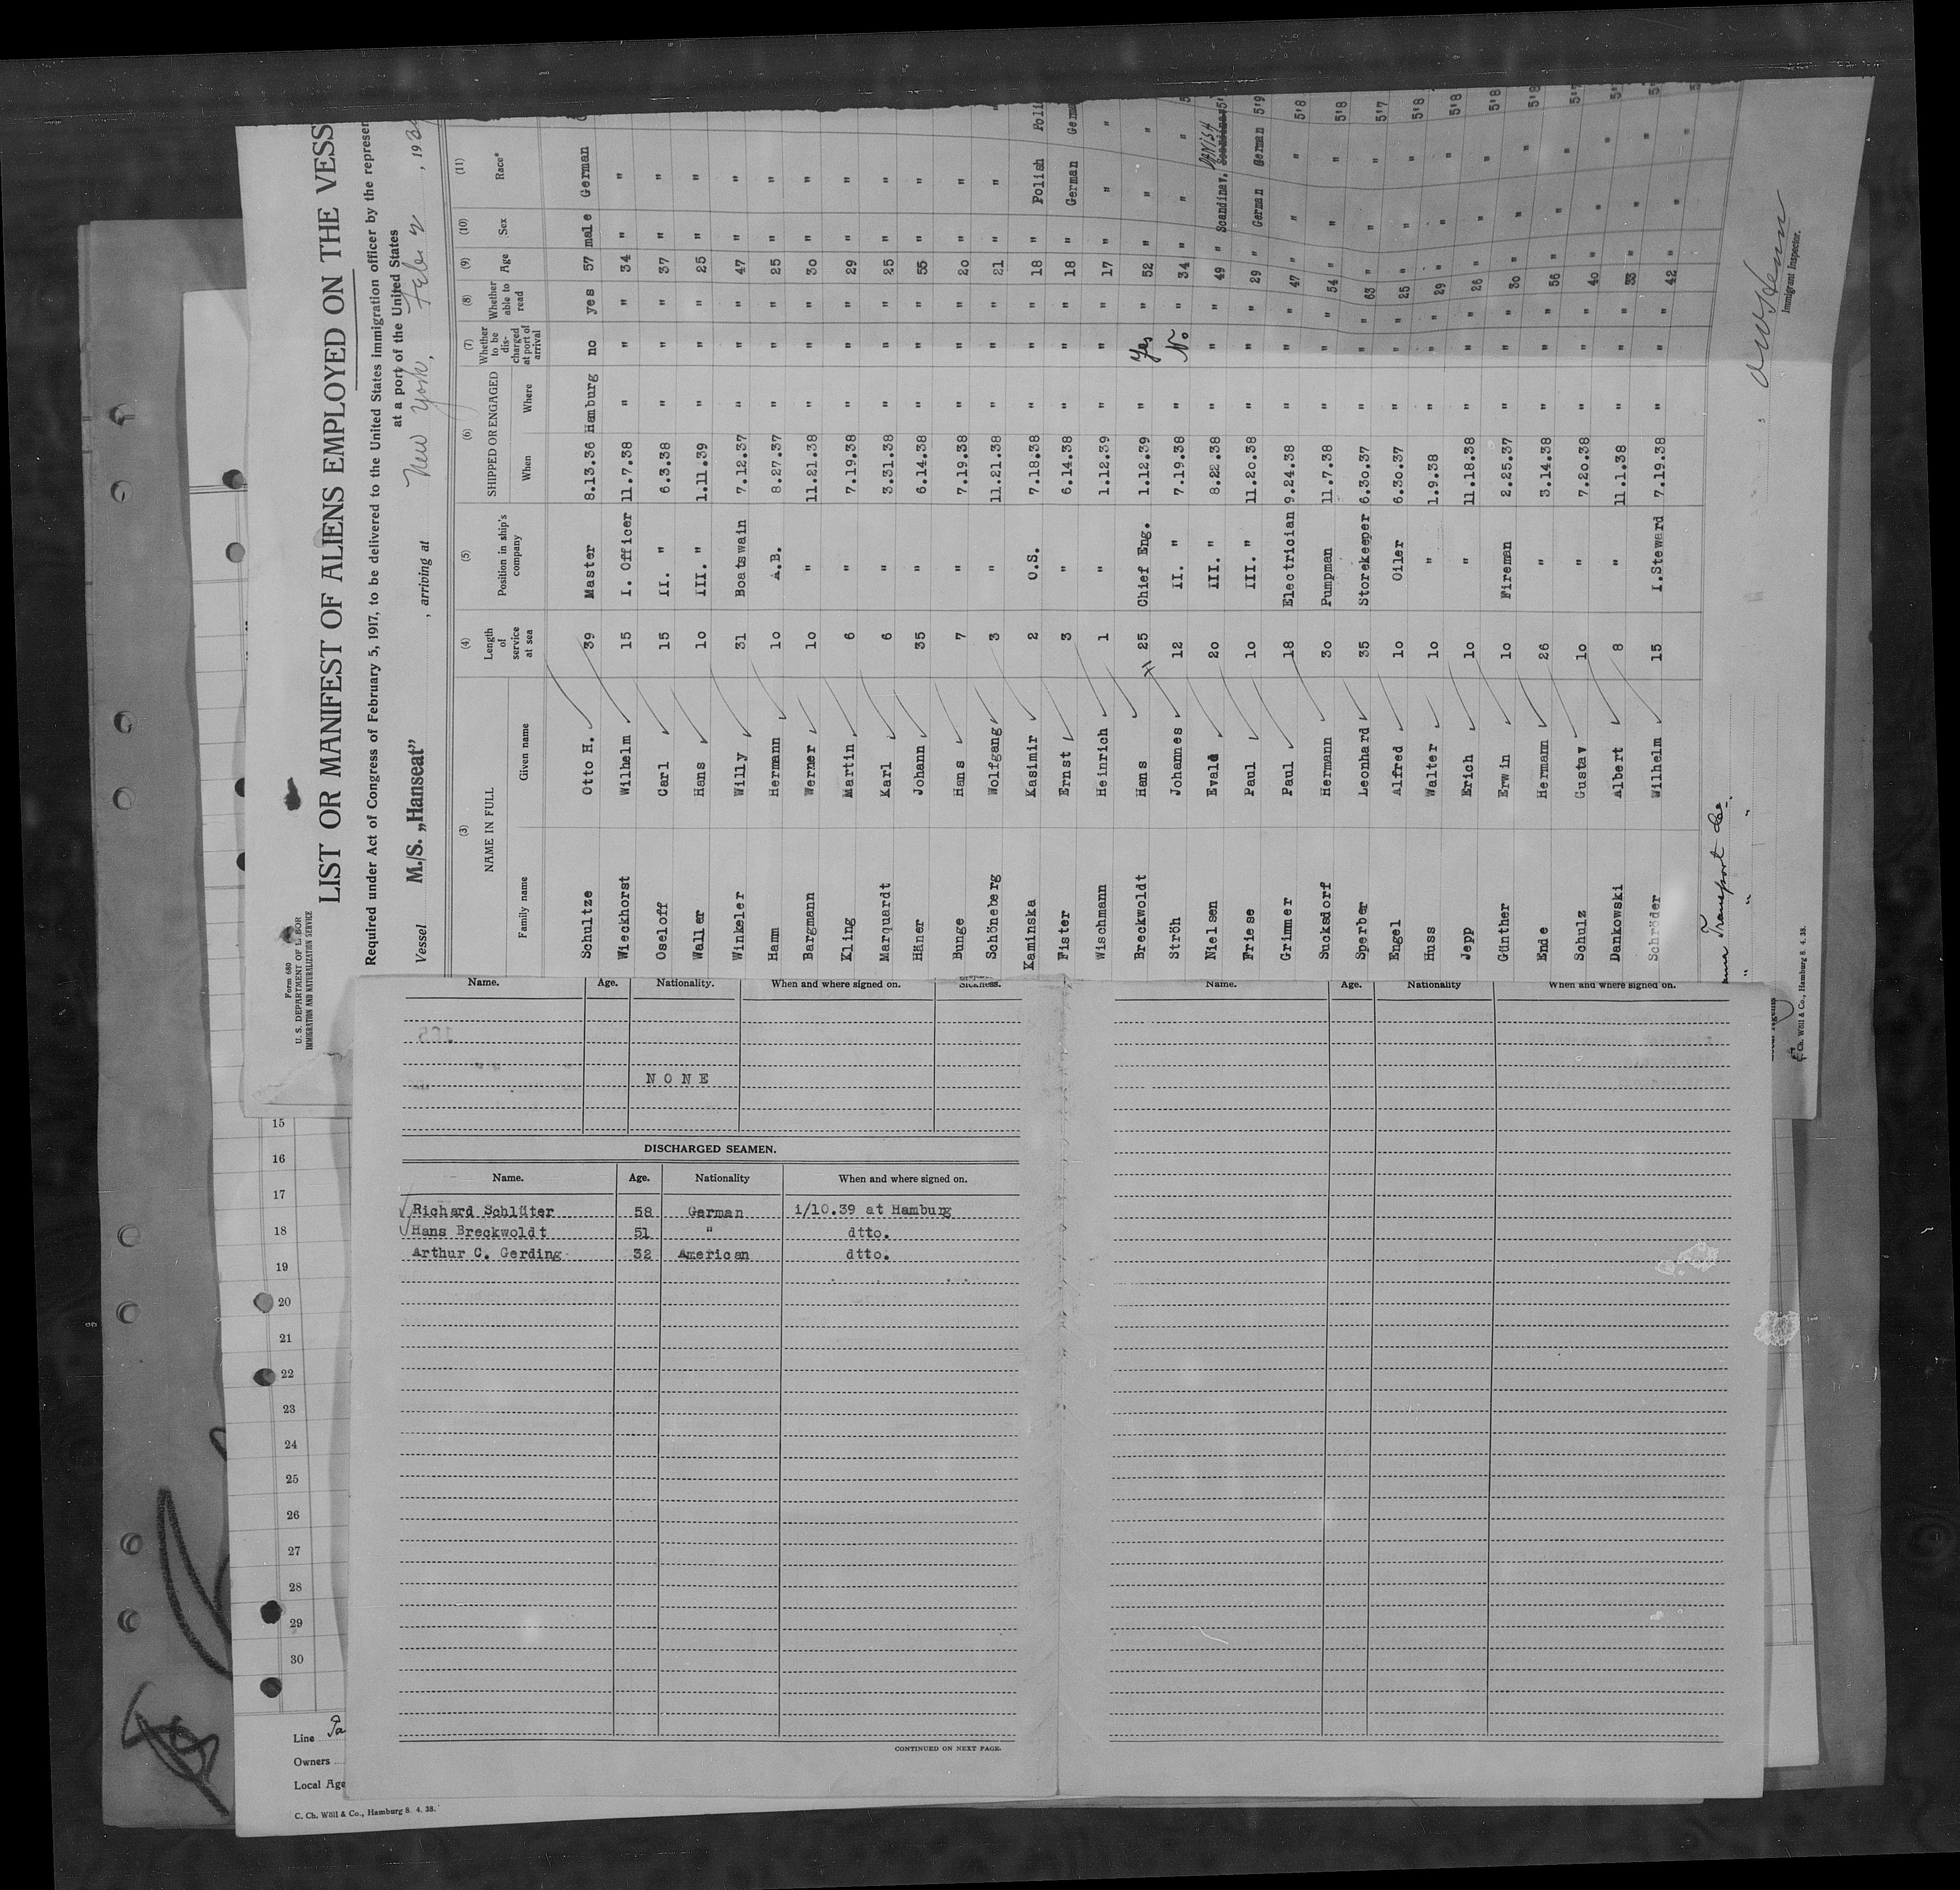 Form 680
U. S. DEPARTMENT OF LABOR
IMMIGRATION AND NATURALIZATION SERVICE
LIST OR MANIFEST OF ALIENS EMPLOYED ON THE VESS
Required under Act of Congress of February 5, 1917, to be delivered to the United States immigration officer by the represen
at a port of the United States
Vessel M./S. „Hanseat” , arriving at New York, Feb. 2 , 193
(3) (4) (5) (6) (7) (8) (9) (10) (11)
NAME IN FULL Length of service at sea Position in ship's company SHIPPED OR ENGAGED Whether to be discharged at port of arrival Whether able to read Age Sex Race*
Family name Given name When Where
Schultze Otto H. 39 Master 8.13.36 Hamburg no yes 57 male German
Wieckhorst Wilhelm 15 I. Officer 11.7.38 " " " 34 " "
Oseloff Carl 15 II. " 6.3.38 " " " 37 " "
Waller Hans 10 III. " 1.11.39 " " " 25 " "
Winkeler Willy 31 Boatswain 7.12.37 " " " 47 " "
Hamm Hermann 10 A.B. 8.27.37 " " " 25 " "
Bargmann Werner 10 " 11.21.38 " " " 30 " "
Kling Martin 6 " 7.19.38 " " " 29 " "
Marquardt Karl 6 " 3.31.38 " " " 25 " "
Häner Johann 35 " 6.14.38 " " " 55 " "
Bunge Hans 7 " 7.19.38 " " " 20 " "
Schöneberg Wolfgang 3 " 11.21.38 " " " 21 " " "
Kaminska Kasimir 2 O.S. 7.18.38 " " " 18 " Polish Poli
Fister Ernst 3 " 6.14.38 " " " 18 " German Germa
Wischmann Heinrich 1 " 1.12.39 " " " 17 " " "
Breckwoldt Hans 25 Chief Eng. 1.12.39 " Yes " 52 " " "
Ströh Johannes 12 II. " 7.19.38 " No " 34 " " " 5
Nielsen Evald 20 III. " 8.22.38 " " " 49 " Scandinav. DANISH Scandinav. 5'
Friese Paul 10 III. " 11.20.38 " " " 29 " German German 5'9
Grimmer Paul 18 Electrician 9.24.38 " " " 47 " " " 5'8
Sucksdorf Hermann 30 Pumpman 11.7.38 " " " 54 " " " 5'8
Sperber Leonhard 35 Storekeeper 6.30.37 " " " 63 " " " 5'7
Engel Alfred 10 Oiler 6.30.37 " " " 25 " " " 5'8
Huss Walter 10 " 1.9.38 " " " 29 " " " 5'8
Jepp Erich 10 " 11.18.38 " " " 26 " " " 5'8
Günther Erwin 10 Fireman 2.25.37 " " " 30 " " " 5'8
Ende Hermann 26 " 3.14.38 " " " 56 " " " 5'
Schulz Gustav 10 " 7.20.38 " " " 40 " " " 5'
Dankowski Albert 8 " 11.1.38 " " " 33 " " " 5'
Schröder Wilhelm 15 I.Steward 7.19.38 " " " 42 " "
Transport Co.
" " "
Immigrant Inspector.
C. Ch. Wöll & Co., Hamburg 8. 4. 38.
Name. Age. Nationality. When and where signed on. Sickness.
NONE
DISCHARGED SEAMEN.
Name. Age. Nationality When and where signed on.
Richard Schlüter 58 German 1/10.39 at Hamburg
Hans Breckwoldt 51 " dtto.
Arthur C. Gerding 32 American dtto.
CONTINUED ON NEXT PAGE.
Name. Age. Nationality When and where signed on.
15
16
17
18
19
20
21
22
23
24
25
26
27
28
29
30
Line Pa
Owners
Local Age
C. Ch. Wöll & Co., Hamburg 8. 4. 38.